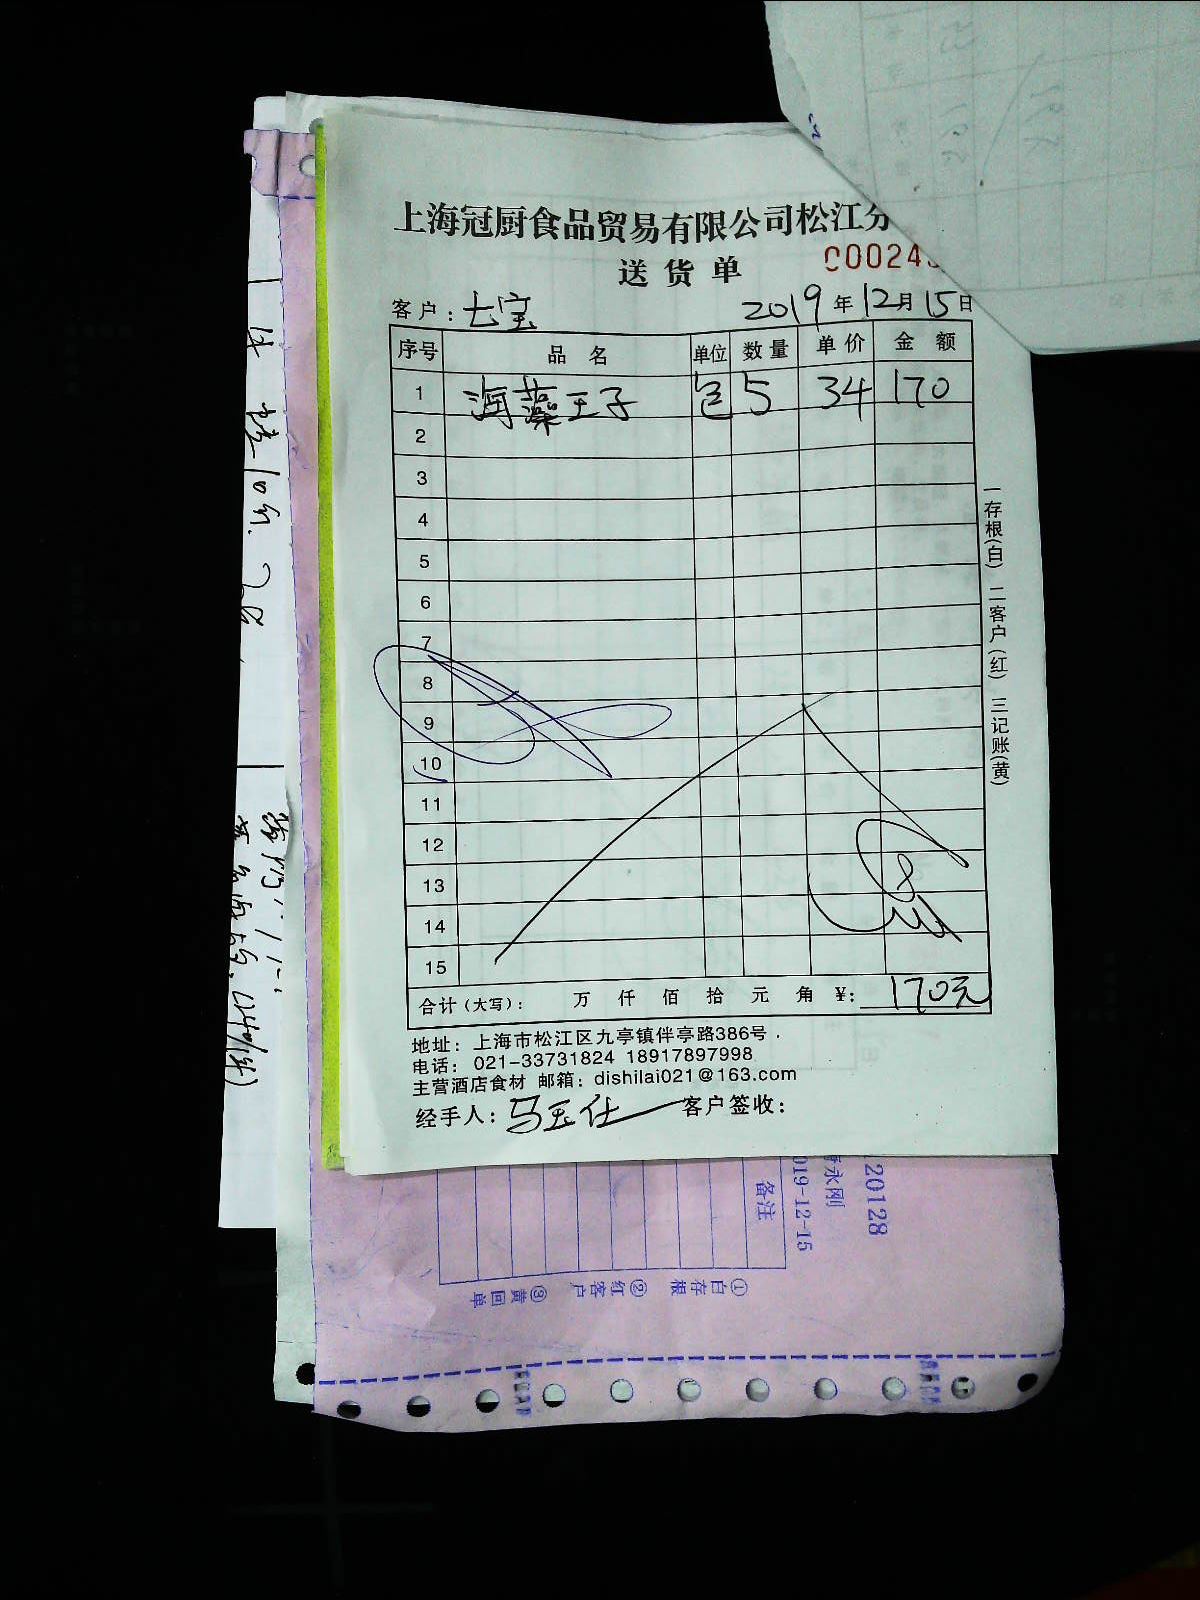 上海冠厨食品贸易有限公司松江分
送货单
C00024
客户：七宝 2019年12月15日
序号 品名 单位 数量 单价 金额
1 海藻王子 包 5 34 170
2
3
4
5
6
7
8
9
10
11
12
13
14
15
合计（大写）： 万 仟 佰 拾 元 角 ¥：170元
地址：上海市松江区九亭镇伴亭路386号
电话：021-33731824 18917897998
主营酒店食材 邮箱：dishilai021@163.com
经手人：马玉仕 客户签收：
一存根(白) 二客户(红) 三记账(黄)
20128
永刚
019-12-15
备注
①白存根 ②红客户 ③黄回单